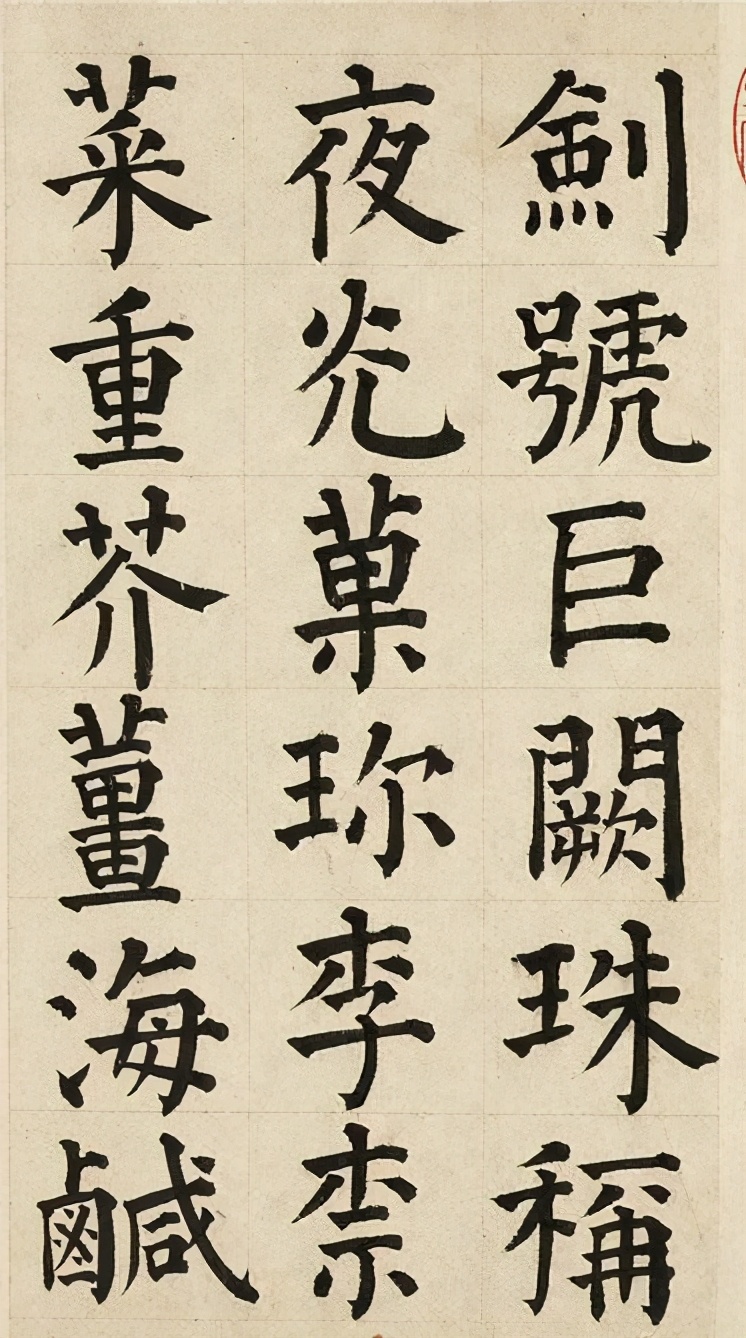 劍號巨闕珠稱
夜光菓珍李柰
菜重芥薑海鹹